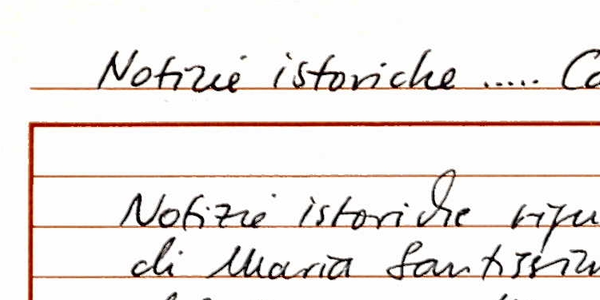 Notizie istoriche ..... Co
Notizie istoriche rigu
di Maria Santissim